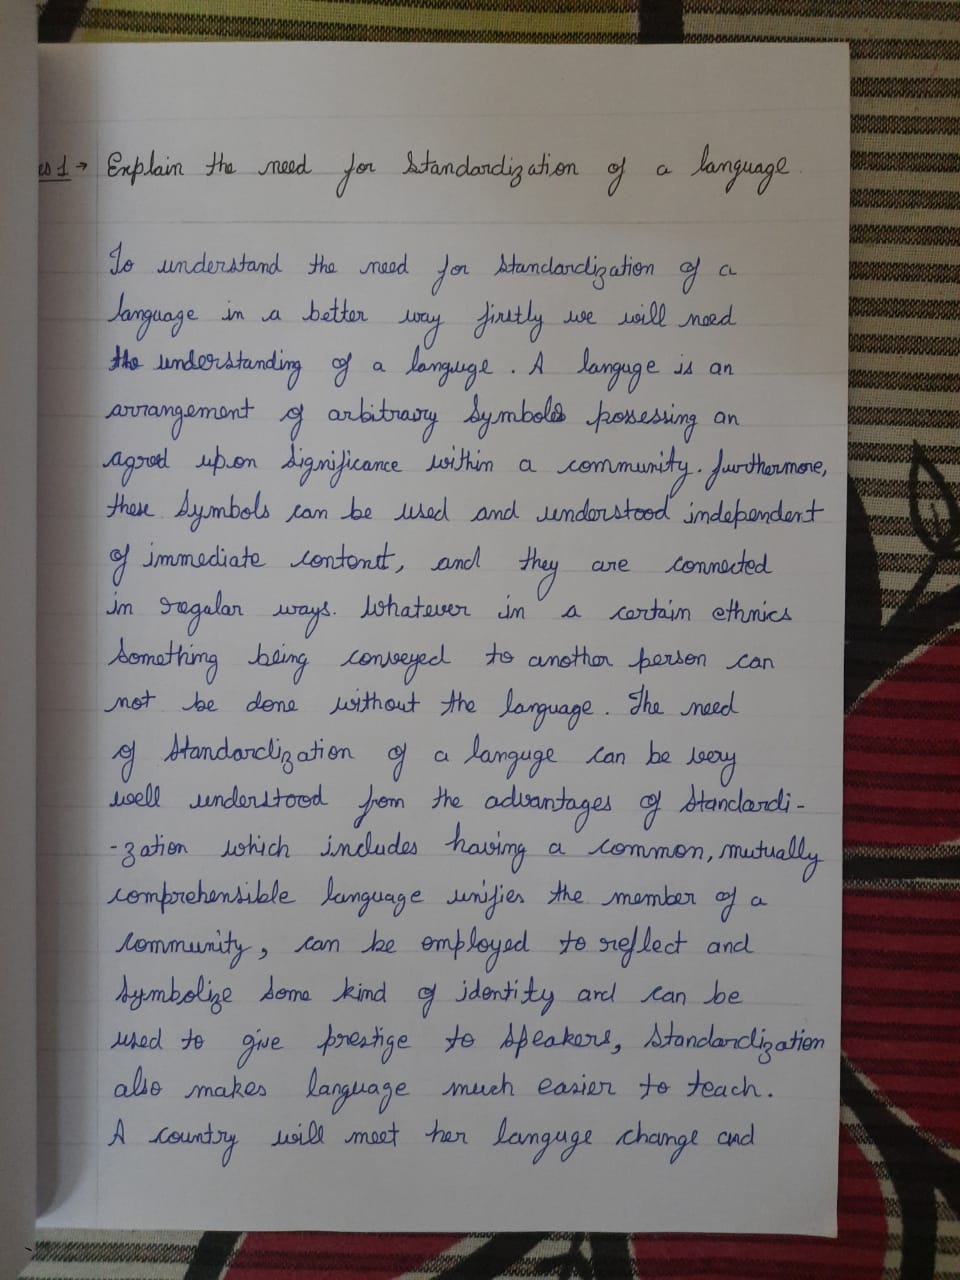 es 1 → Explain the need for standardization of a language.
To understand the need for standardization of a
language in a better way firstly we will need
the understanding of a languge. A languge is an
arrangement of arbitrary symbols possessing an
agreed upon significance within a community. furthermore,
these symbols can be used and understood independent
of immediate contentt, and they are connected
in regular ways. Whatever in a certain ethnics
something being conveyed to another person can
not be done without the language. The need
of standardization of a languge can be very
well understood from the advantages of standardi-
-zation which includes having a common, mutually
comprehensible language unifies the member of a
community, can be employed to reflect and
symbolize some kind of identity and can be
used to give prestige to speakers, standardization
also makes language much easier to teach.
A country will meet her languge change and